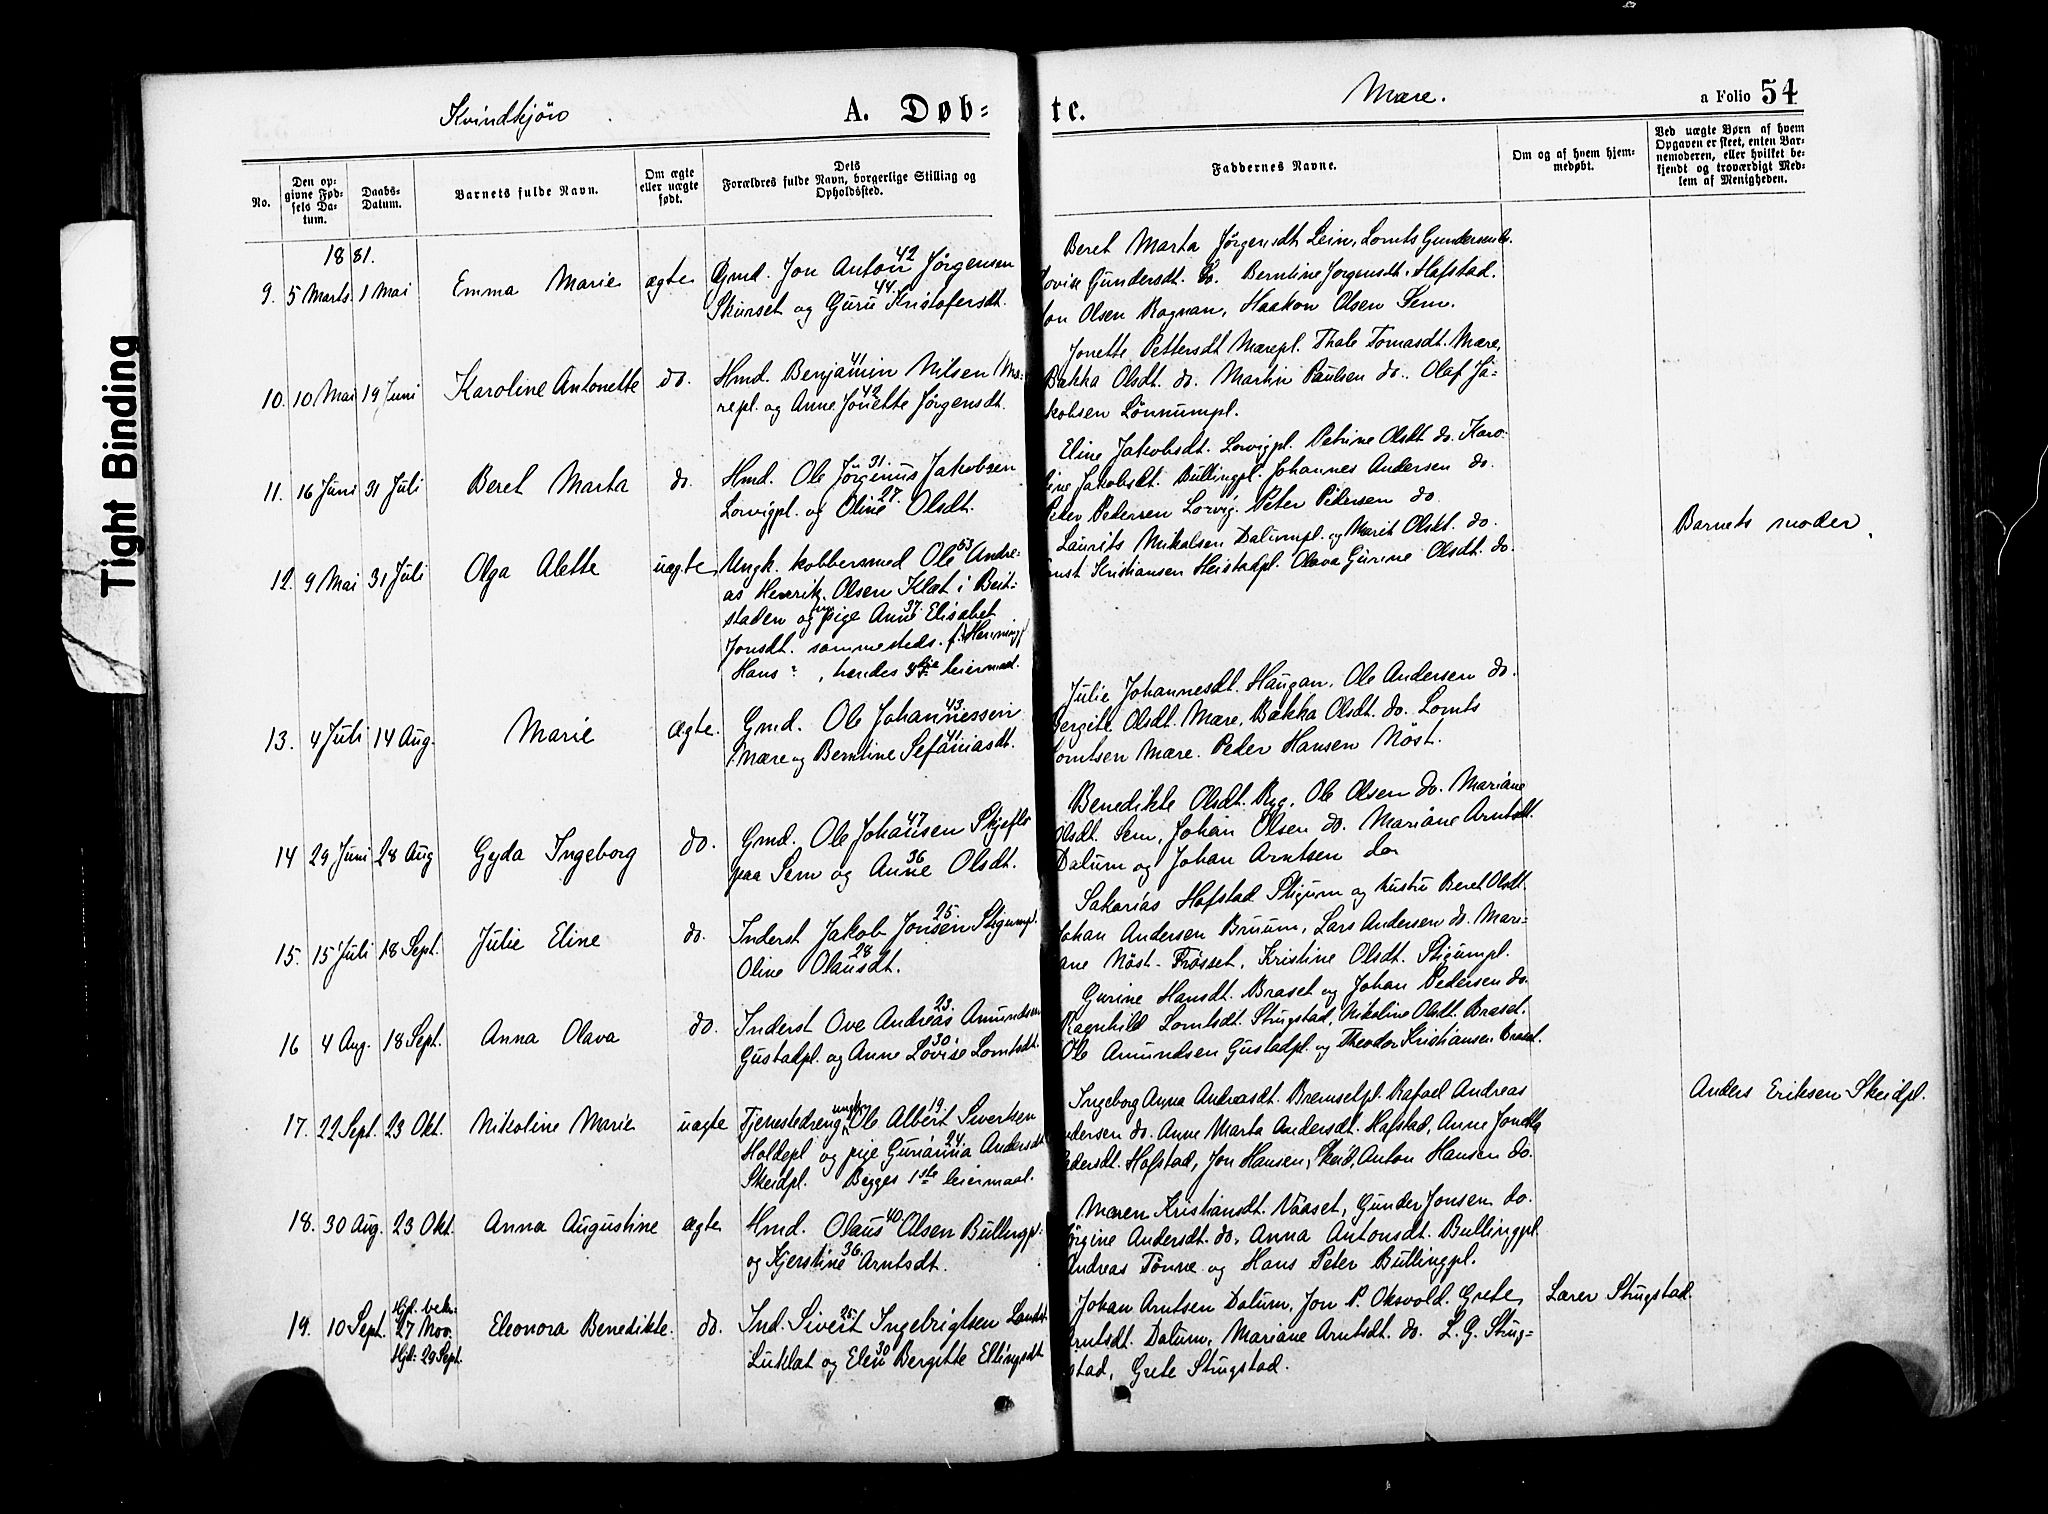 Tight Binding
Kvindkjön
A. Døb=
te.
Mære.
a Folio 54
No.
Den op-
givne Fød-
sels Da-
tum.
Daabs-
Datum.
Barnets fulde Navn.
Om ægte
eller uægte
født.
Dets
Forældres fulde Navn, borgerlige Stilling og
Opholdssted.
Faddernes Navne.
Om og af hvem hjem-
medøbt.
Ved uægte Børn af hvem
Opgaven er skeet, enten Bar-
nemoderen, eller hvilket be-
kjendt og troværdigt Med-
lem af Menigheden.
1881.
9. 5 Marts 1 Mai Emma Marie ægte Gmd. Jon Anton 42 Jörgensen
Skurset og Guru 44 Kristofersdt.
Beret Marta Jörgensdt. Lein, Lornts Gundersen
Gundersdt. do. Berntine Jörgensdt. Hofstad.
Olsen Rognan, Haakon Olsen Sem.
10. 10 Mai 19 Juni Karoline Antonette do. Hmd. Benjamin 41 Nilsen Mæ-
repl. og Anne Jonette 42 Jörgensdt.
Jonette Pettersdt. Mærepl. Thale Tomasdt. Mære,
Bakka Olsdt. do. Martin Paulsen do. Olaf Ja-
kobsen Lönnumpl.
11. 16 Juni 31 Juli Beret Marta do. Hmd. Ole Jörginus 31 Jakobsen
Lorvigpl. og Oline 27. Olsdt.
Eline Jakobsdt. Lorvigpl. Petrine Olsdt. do. Karo-
line Jakobsdt. Bullingpl. Johannes Andersen do.
Peder Pedersen Lorvig. Peter Pedersen do.
12. 9 Mai 31 Juli Olga Alette uægte Ungk. kobbersmed Ole 53 Andre-
as Henrik Olsen Klæt i Beit-
staden og pige Anne 37. Elisabet
Jonsdt. sammesteds.
Hans 2., hendes leiermaal.
Laurits Mikalsen Dalumpl. og Marit Olsdt. do.
Kristiansen Heistadpl. Olava Gurine Olsdt. do.
Barnets moder
13. 4 Juli 14 Aug. Marie ægte. Gmd. Ole Johannessen 43.
Mære og Berntine Sefaniasdt. 41
Julie Johannesdt. Haugan, Ole Andersen do.
Bergite Olsdt. Mære, Bakka Olsdt. do. Lornts
Lorntsen Mære. Peder Hansen Nöst.
14 29 Juni 28 Aug Gyda Ingeborg do. Gmd. Ole Johansen 47 Skjefte
paa Sem og Anne 36 Olsdt.
Benedikte Olsdt. Ryg, Ole Olsen do. Mariane
Olsdt. Sem, Johan Olsen do. Mariane Arntsdt.
Dalum og Johan Arntsen do.
15. 15 Juli 18 Sept. Julie Eline do. Inderst Jakob Jonsen 25. Stigumpl.
Oline Olausdt. 28
Sakarias Hofstad Stigum og hustru Beret Olsdt.
Johan Andersen Bruum, Lars Andersen do. Mari-
ane Nöst-Frösset, Kristine Olsdt. Stigumpl.
16 4 Aug. 18 Sept. Anna Olava do. Inderst Ove Andreas 23. Amundsen
Gustadpl. og Anne Lovise 30 Lorntsdt.
Gurine Hansdt. Braset og Johan Pedersen do.
Ragnhild Lorntsdt. Strugstad, Nikoline Olsdt. Braset.
Ole Amundsen Gustadpl. og Theodor Kristiansen Braset.
17. 22 Sept. 23 Okt. Nikoline Marie uægte Tjenestedreng ungkar Ole Albert 19 Sivertsen
Holdepl og pige Gurianna 24. Andersdt.
Skeidpl. Begges 1ste leiermaal.
Ingeborg Anna Andreasdt. Bremsetpl. Rafael Andreas
Andersen do. Anne Marta Andersdt. Hofstad, Anne Jonetta
Pedersdt. Hofstad, Jon Hansen, Skeid, Anton Hansen do.
Anders Eriksen Skeidpl.
18. 30 Aug. 23 Okt. Anna Augustine ægte Hmd. Olaus 40 Olsen Bullingpl.
og Kjerstine 36 Arntsdt.
Maren Kristiansdt. Vaaset, Gunder Jonsen do.
Jörgine Andersdt. do. Anna Antonsdt. Bullingpl.
Andreas Tönne og Hans Peter Bullingpl.
19. 10 Sept. Hjd. bekr. 27 Nov. Hjd: 29 Sept. Eleonora Benedikte. do. Ind. Sivert 25 Ingebrigtsen
Luklæt og Elen 30 Bergitte Ellingsdt
Johan Arntsen Dalum, Jon P. Oksvold. Grete
Arntsdt. Dalum, Mariane Arntsdt. do. L. G. Strug-
stad, Grete Strugstad.
Lærer Strugstad.